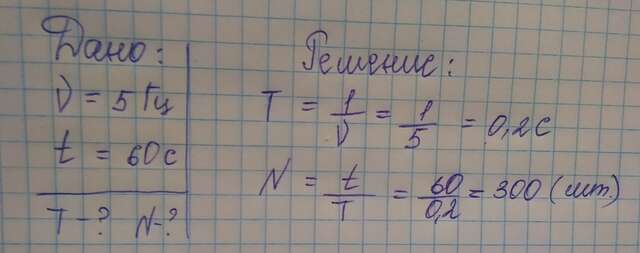 Дано:
ν = 5 Гц
t = 60 с
T - ? N - ?
Решение:
T = 1/ν = 1/5 = 0,2 с
N = t/T = 60/0,2 = 300 (шт.)